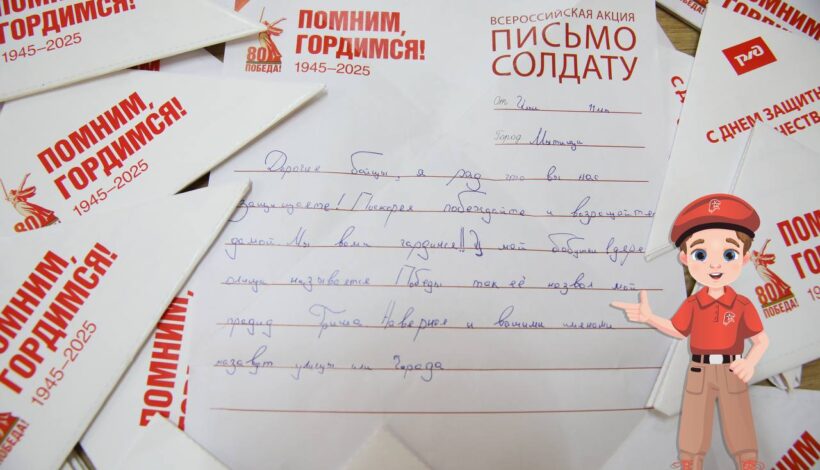 ПОМНИМ,
ГОРДИМСЯ!
1945–2025
80
ПОБЕДА!
ПОМНИМ,
ГОРДИМСЯ!
1945–2025
ВСЕРОССИЙСКАЯ АКЦИЯ
ПИСЬМО
СОЛДАТУ
От
Город Мытищи
Дорогие бойцы, я рад что вы нас
защищаете! Поскорея побеждайте и возрощайте
домой. Мы вами гардимся!! мой бабушки в дере
улица называется Победы так её назвал мой
прадид Гриша Наверное и вашими именами
назавут улицы или Города
ПОМНИМ,
ГОРДИМСЯ!
1945–2025
ПОМНИМ,
ГОРДИМСЯ!
1945–2025
ПОБЕДА!
ПОМНИМ,
РЖД
С ДНЕМ ЗАЩИТН
ЧЕСТВА
ПОМНИМ,
ГОРДИМСЯ!
1945–2025
80
ПОБЕДА!